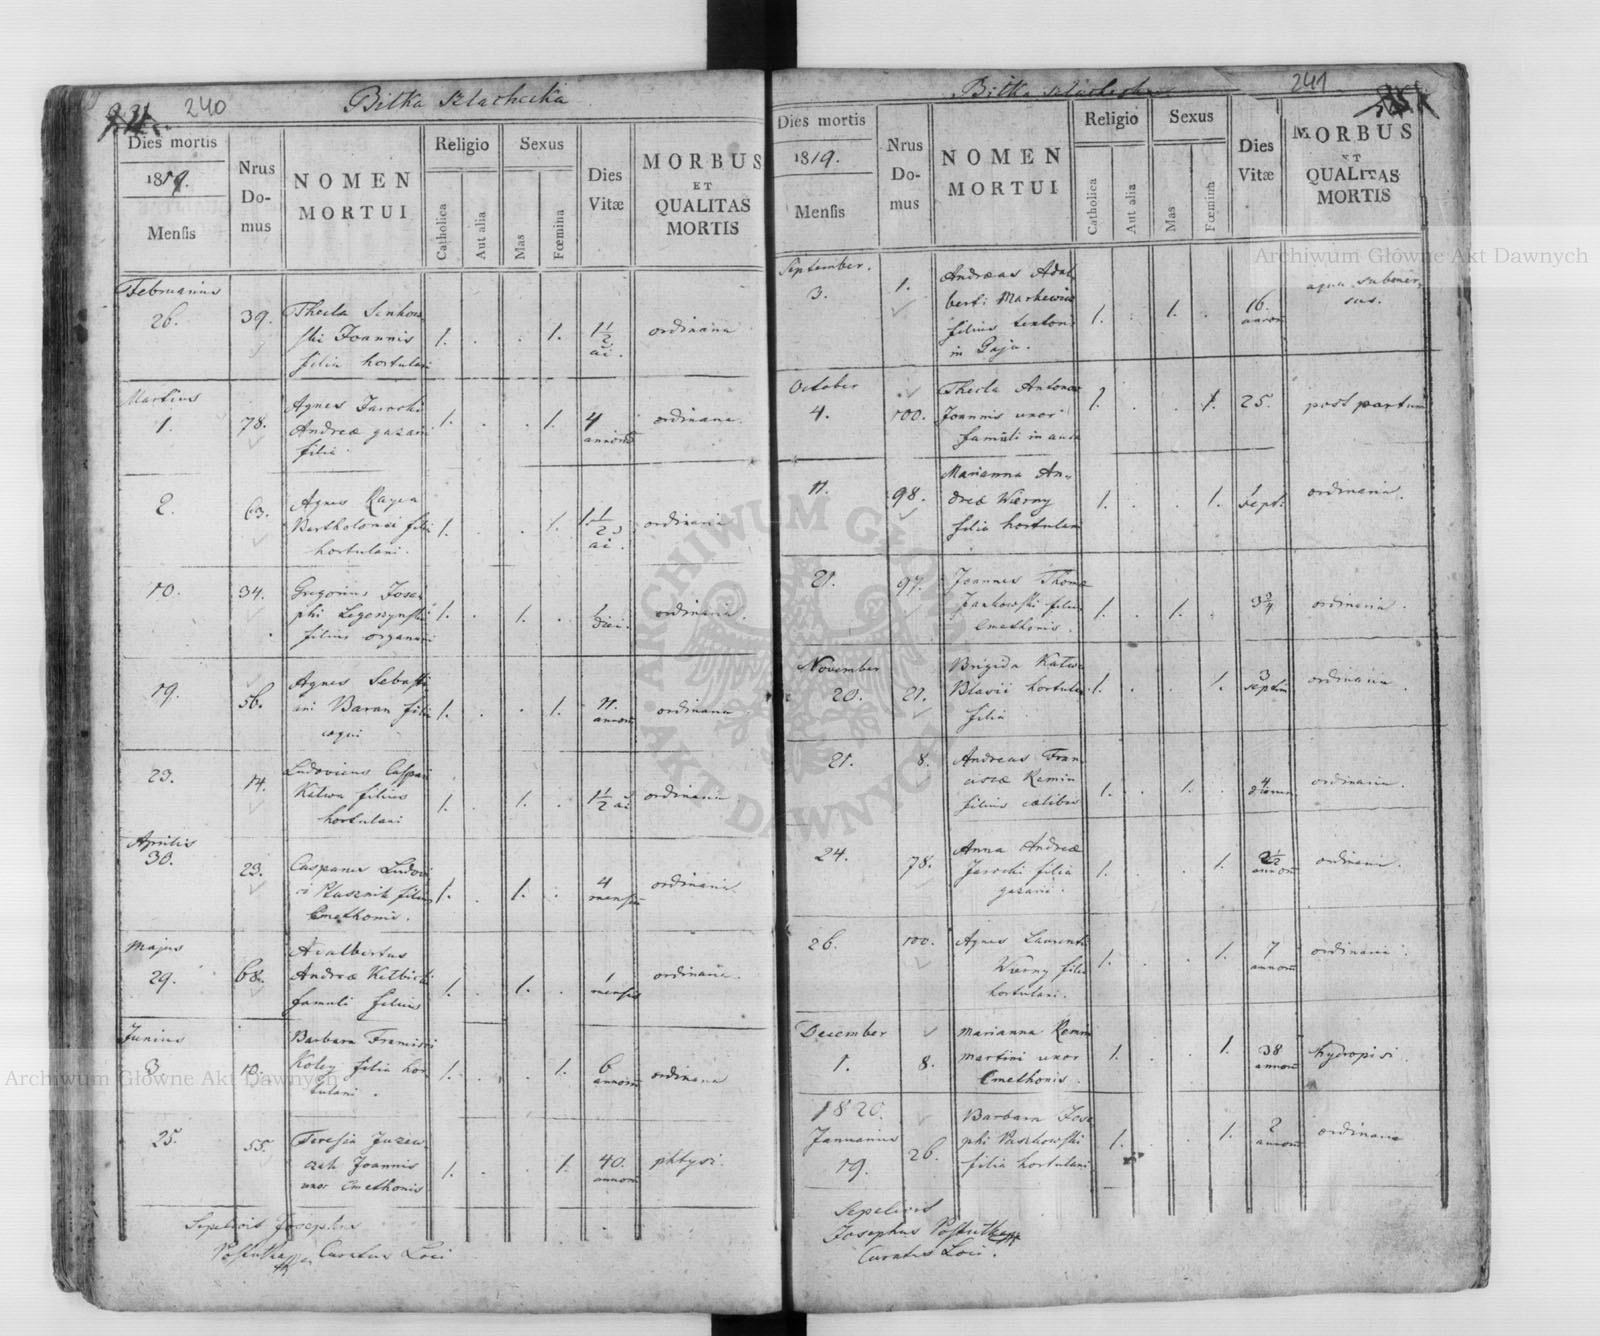 240
Bilka Szlachecka
Dies mortis
1819.
Mensis
Nrus
Do-
mus
NOMEN
MORTUI
Religio
Catholica
Aut alia
Sexus
Mas
Fœmina
Dies
Vitæ
MORBUS
ET
QUALITAS
MORTIS
Februarius
26.
39.
Thecla
Joannis
filia hortulani
1.
.
.
1.
1 1/2
ai.
ordinaria
Martius
1.
78.
Agnes Jarocki
Andreæ gazarii
filia.
1.
.
.
1.
4
annorum
ordinaria.
2.
63.
Agnes
Bartholomei filia
hortulani.
1.
.
.
1.
1 1/2
ai.
ordinaria
10.
34.
Gregorius Jose-
phi
filius organarii
1.
.
1.
.
1
diei.
ordinaria.
19.
56.
Agnes Sebasti-
ani Baran filia
coqui
1.
.
.
1.
11.
annorum
ordinaria
23.
14.
Ludovicus Caspari
Katwa filius
hortulani
1.
.
1.
.
1 1/2 ai
ordinaria.
Aprilis
30.
23.
Casparus Ludovi-
ci filius
Cmethonis.
1.
.
1.
.
4
mensium
ordinaria.
Majus
29.
68.
Adalbertus
Andreæ
famuli filius
1.
.
1.
.
1
mensis
ordinaria.
Junius
3.
10.
Barbara Francisci
filia hor-
tulani.
1.
.
.
1.
6
annorum
ordinaria
25.
55.
Teresia
Joannis
uxor Cmethonis
1.
.
.
1.
40.
annorum
phtysi.
Sepelivit Josephus
Curatus Loci
241
Bilka Szlachecka
Dies mortis
1819.
Mensis
Nrus
Do-
mus
NOMEN
MORTUI
Religio
Catholica
Aut alia
Sexus
Mas
Fœmina
Dies
Vitæ
MORBUS
ET
QUALITAS
MORTIS
September.
3.
1.
Andreas Adal-
berti Markewicz
filius textoris
in Gaju.
1.
.
1.
.
16.
annorum
aqua submer-
sus.
October
4.
100.
Thecla Antonow
Joannis uxor
famuli in aula
1.
.
.
1.
25.
post partum
11.
98.
Marianna An-
dreæ Wierny
filia hortulani
1.
.
.
1.
1
sept.
ordinaria.
21.
97.
Joannes Thomæ
Jankowski filius
Cmethonis.
1.
.
1.
.
3/4
ordinaria.
November
20.
21.
Brigida Katwa
Blasii hortulani
filia
1.
.
.
1.
3
septim
ordinaria.
21.
8.
Andreas Fran-
ciscæ
filius cælibis
1.
.
1.
.
4
dierum
ordinaria
24.
78.
Anna Andreæ
Jarocki filia
gazarii.
1.
.
.
1.
2 1/2
annorum
ordinaria.
26.
100.
Agnes Laurentii
Wierny filia
hortulani.
1.
.
.
1.
7
annorum
ordinaria.
December
1.
8.
Marianna
Martini uxor
Cmethonis.
1.
.
.
1.
38
annorum
hydropisi.
1820.
Januarius
19.
26.
Barbara Jose-
phi
filia hortulani
1.
.
.
1.
2
annorum
ordinaria
Sepelivit
Josephus
Curatus Loci.
Archiwum Główne Akt Dawnych
Archiwum Główne Akt Dawnych
ARCHIWUM GŁÓWNE AKT DAWNYCH